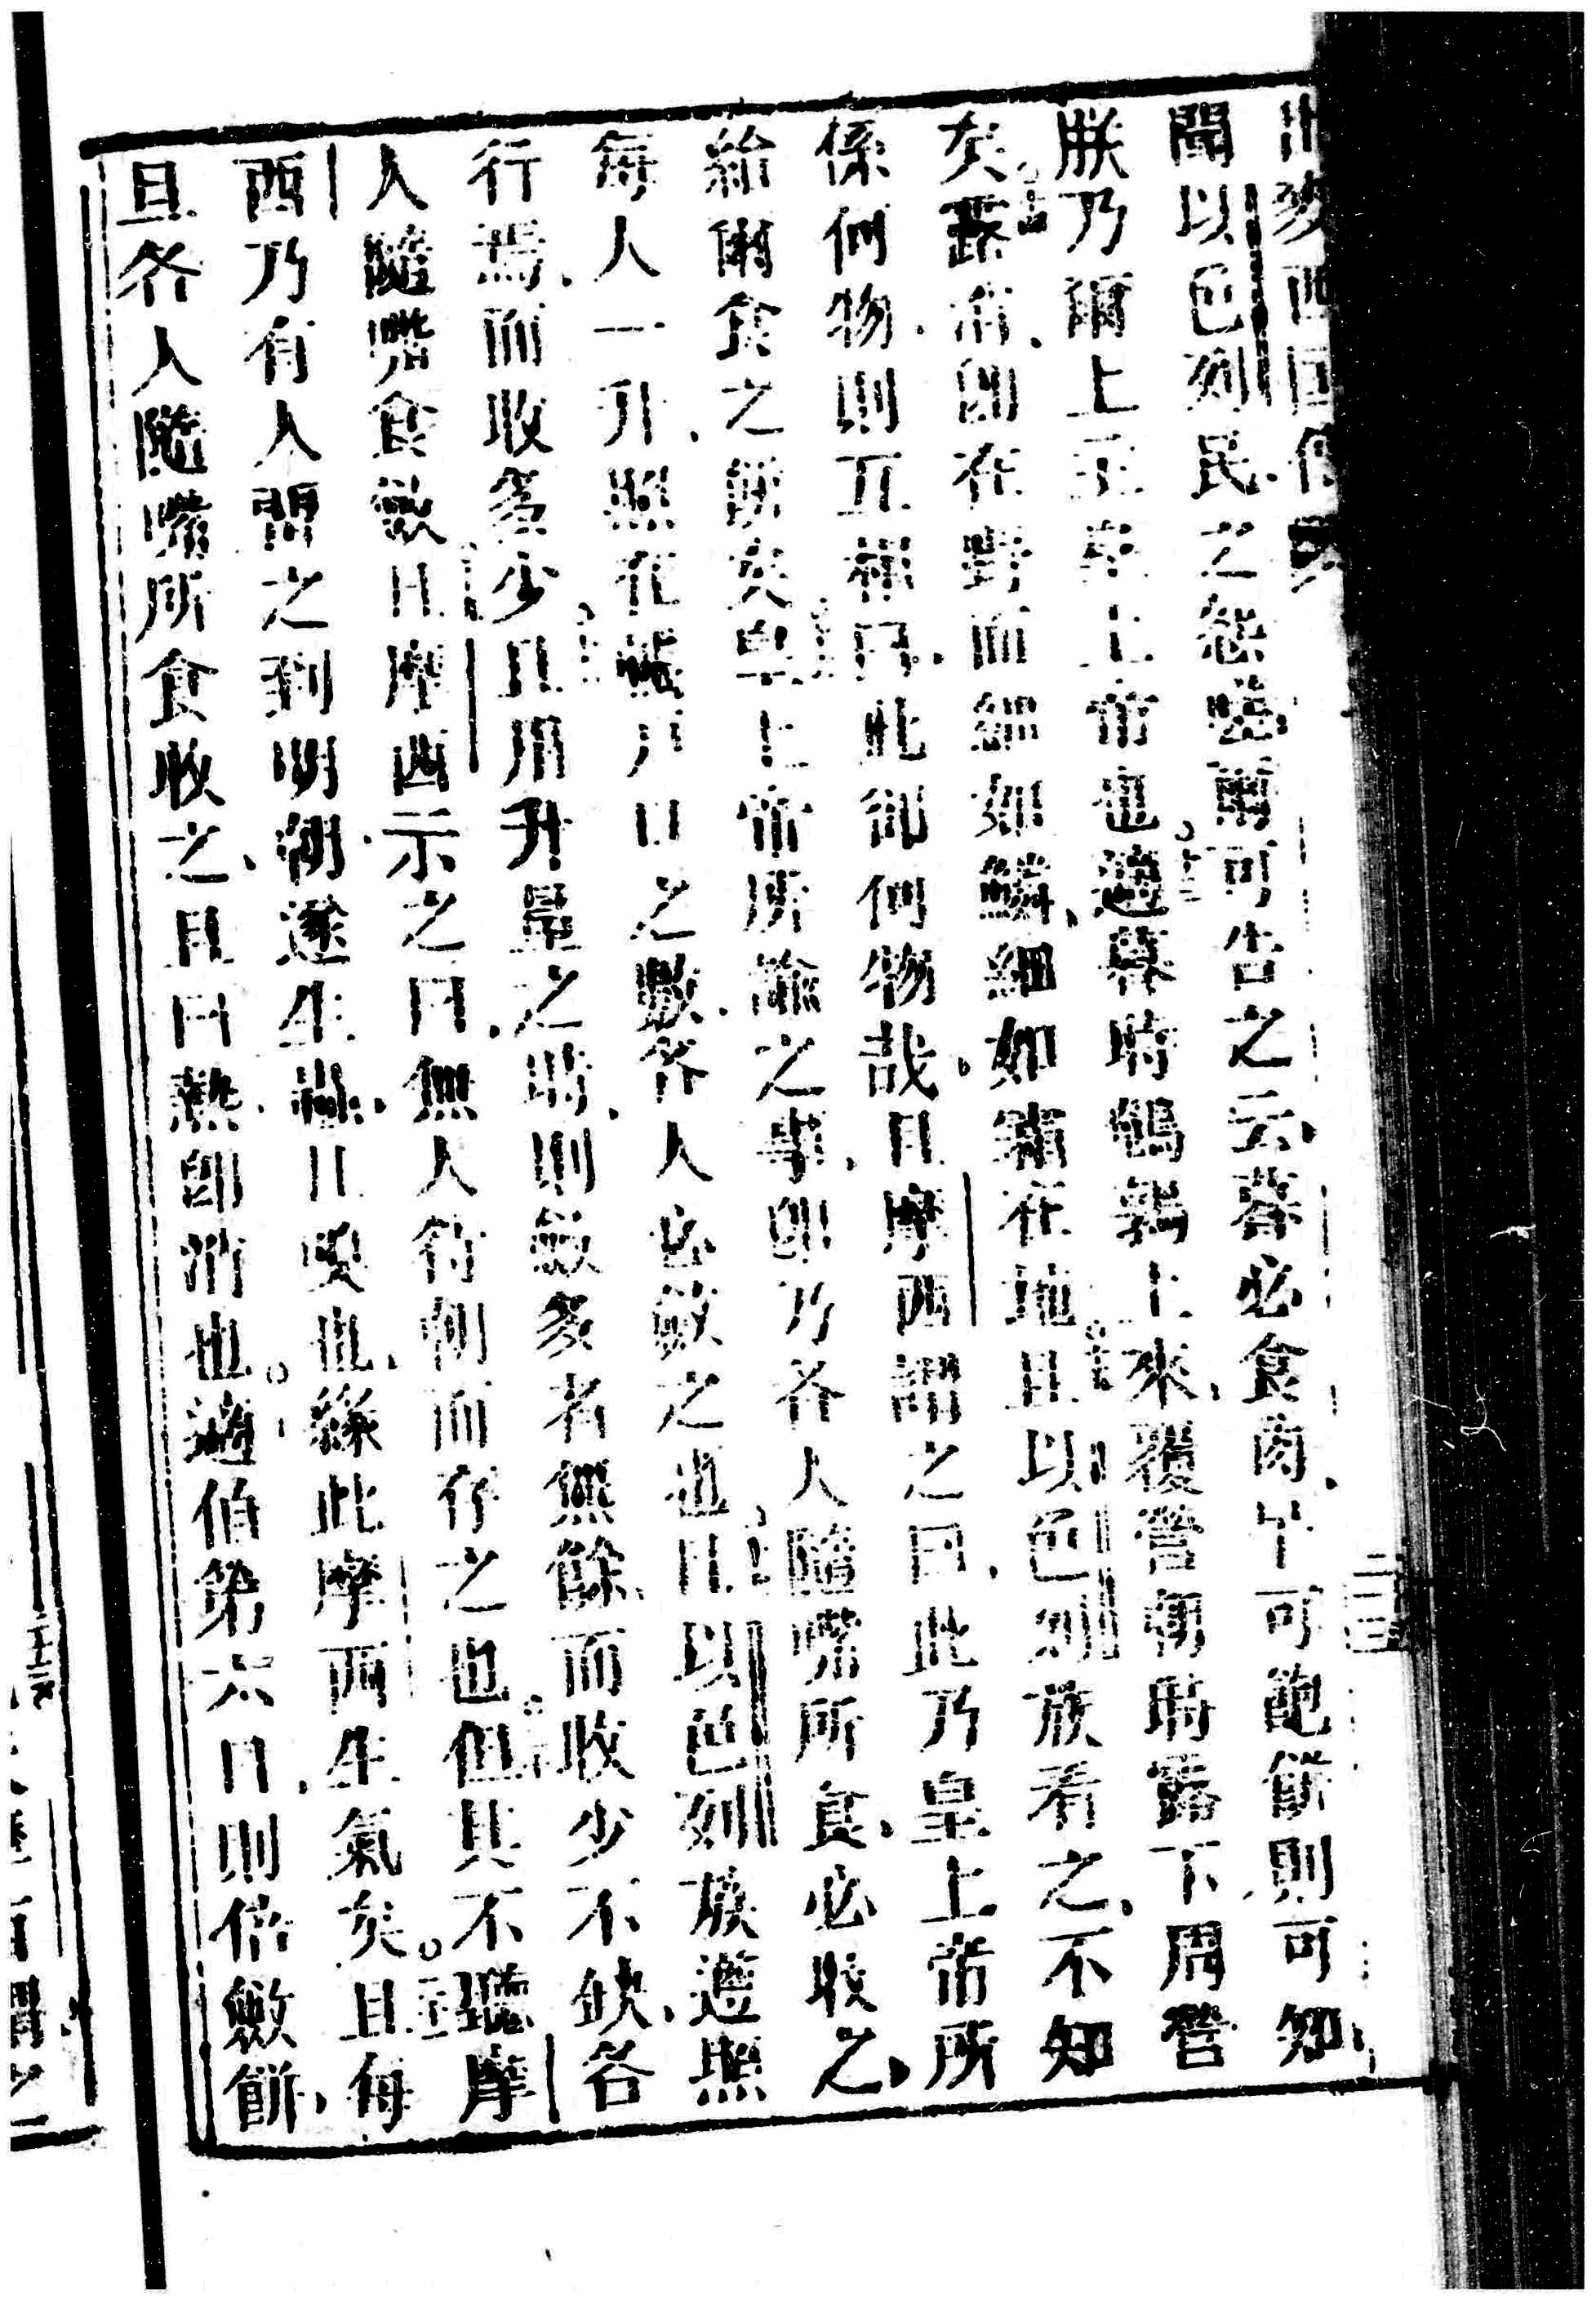 出麥西國傳
聞以色列民之怨。朕聞爾可告之云、暮必食肉、早可飽餅、則可知、
朕乃爾上主皇上帝也。適暮時鵪鶉上來、覆營、朝時露下周營
矣。露消、卽在野而細如鱗、細如霜在地。且以色列族看之、不知
係何物、則互相曰、此卻何物哉、且摩西謂之曰、此乃皇上帝所
給爾食之餅矣。皇上帝所諭之事、卽乃各人隨嘴所食、必收之、
每人一升、照在帳戶口之數、各人必斂之也。且以色列族遵照
行焉、而收多少。且用升量之時、則斂多者無餘、而收少不缺、各
人隨嘴食斂。且摩西示之曰、無人待朝而存之也。但其不聽摩
西、乃有人留之到明朝、遂生蟲、且臭也、緣此摩西生氣矣。且每
旦各人隨嘴所食收之、且日熱、卽消也。適伯第六日、則倍斂餅、